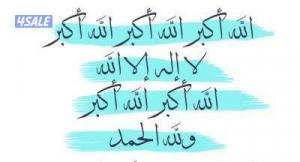 4SALE
الله أكبر الله أكبر الله أكبر
لا إله إلا الله
الله أكبر الله أكبر
ولله الحمد